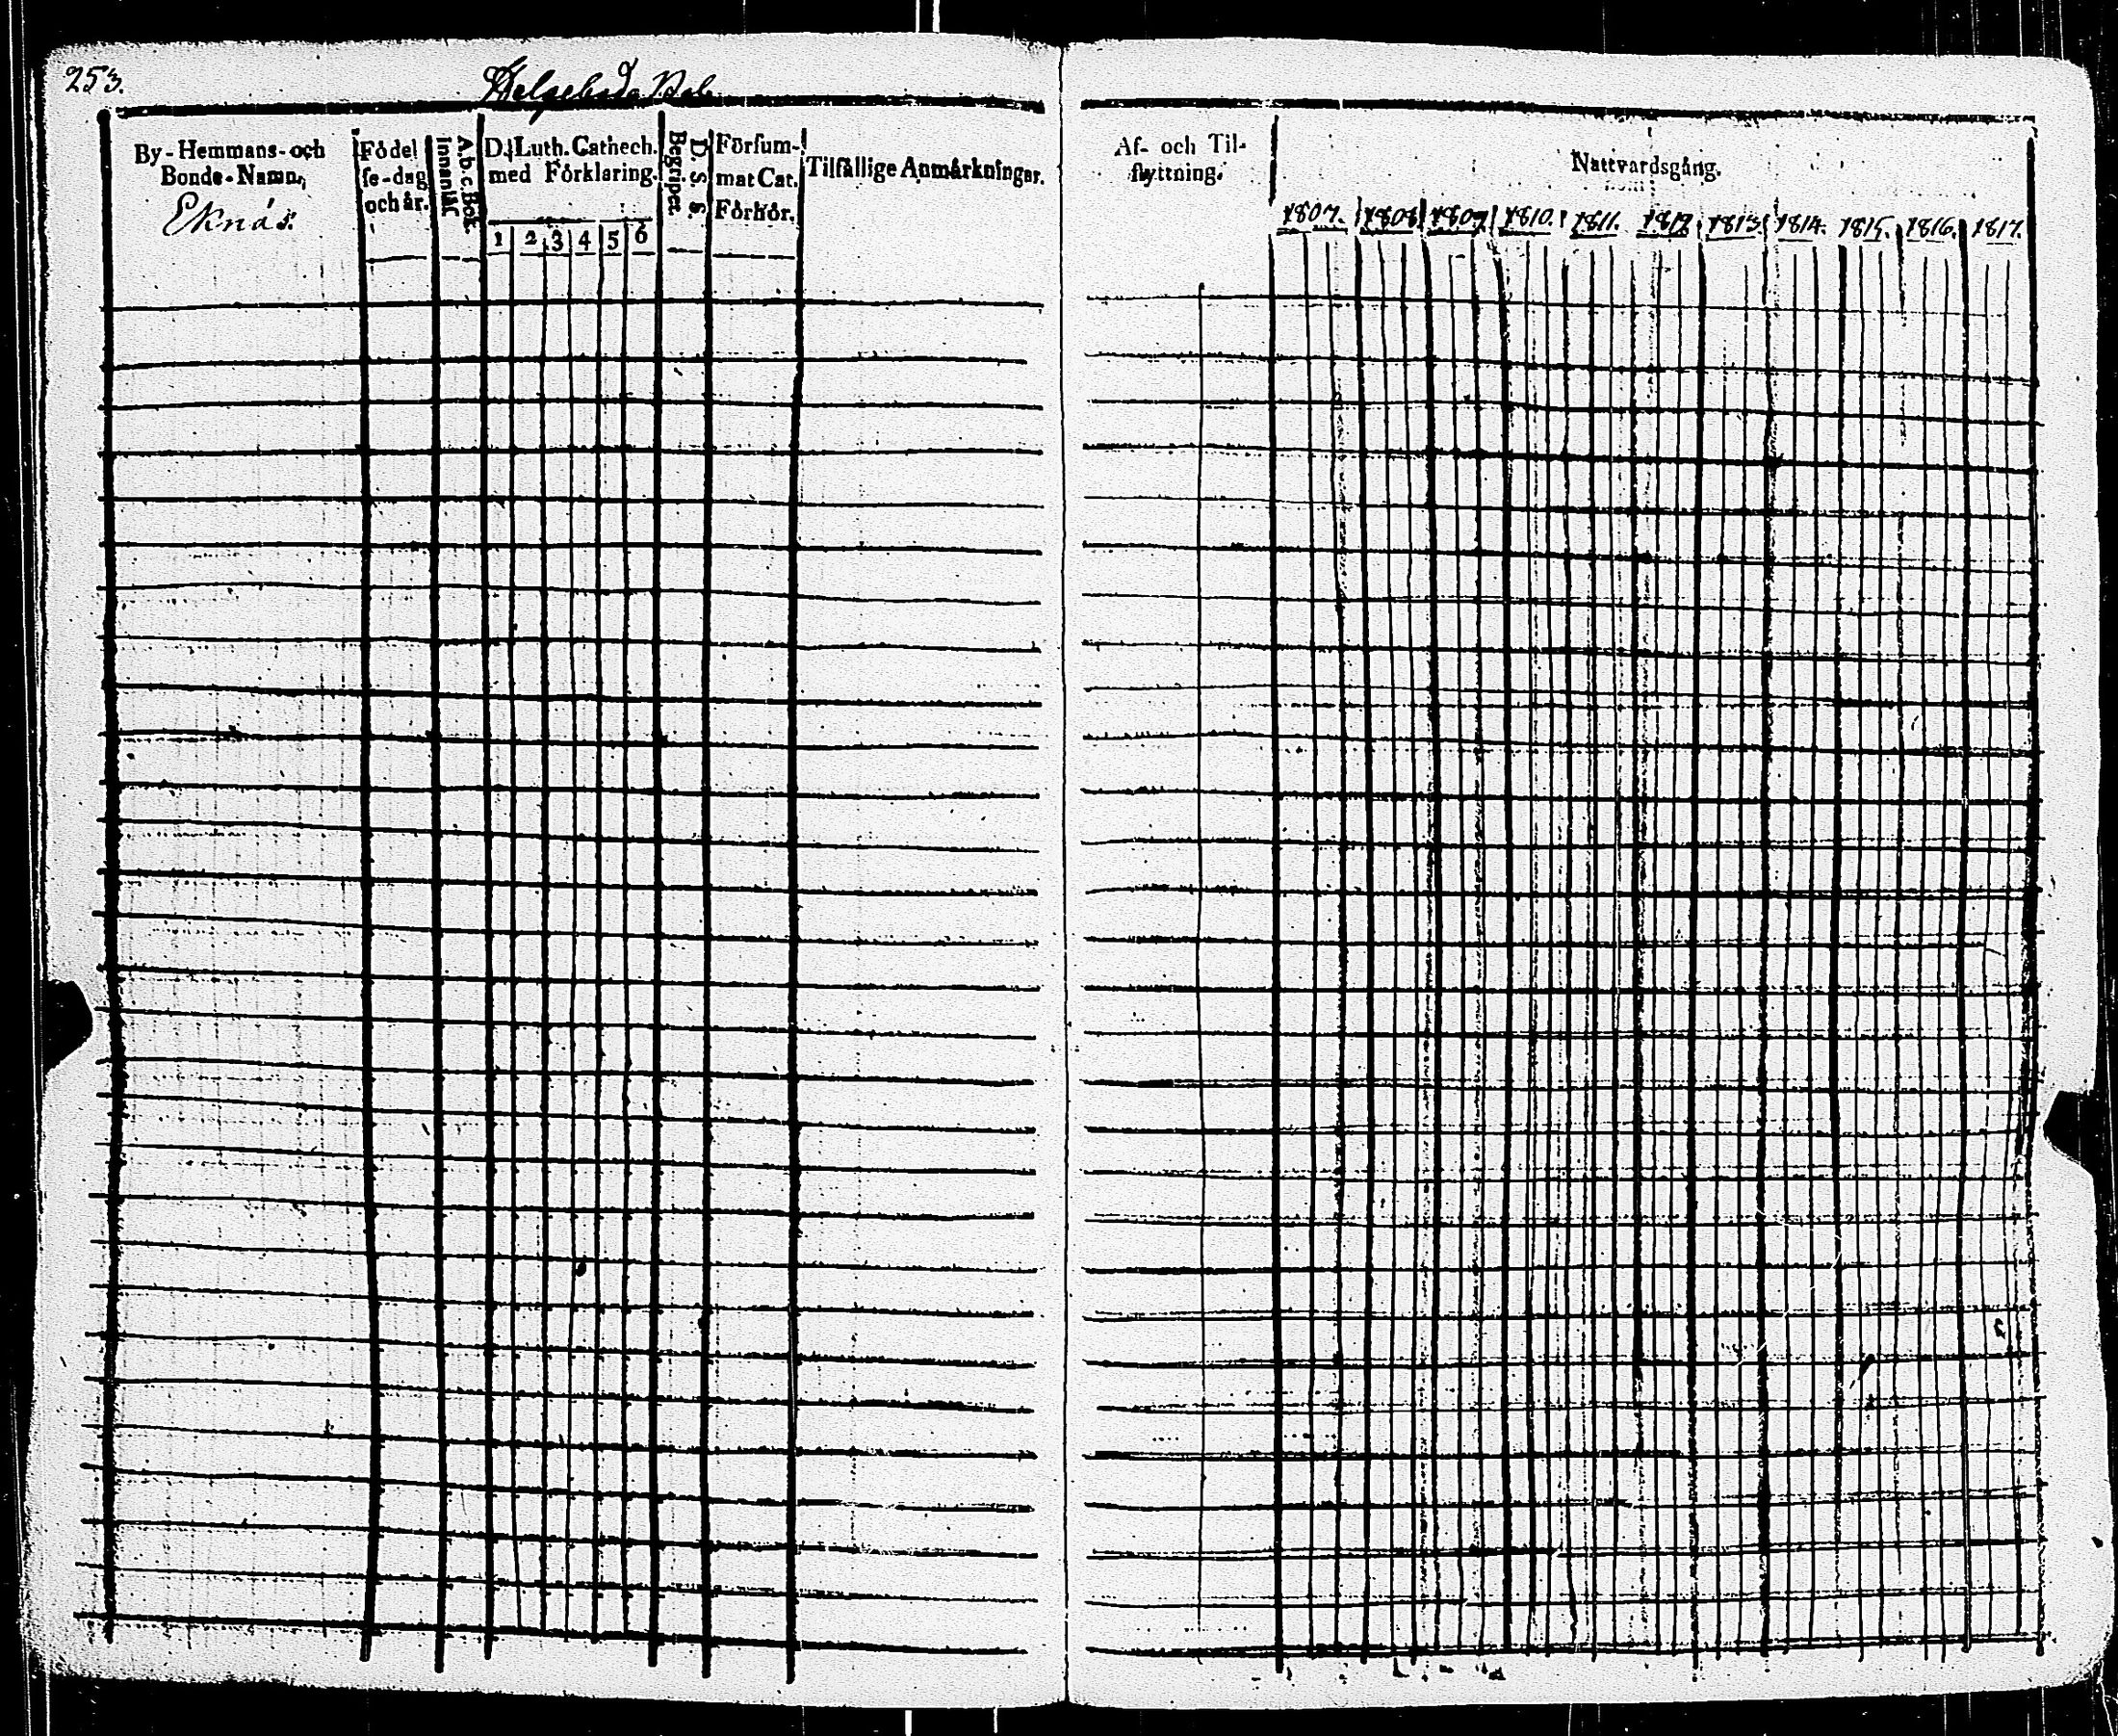 253.
Helgeboda Rote
By-Hemmans-och
Bonde-Namn,
Eknäs.
Födel
se-dag
och år.
A.b.c.Bok.
innanläs
D. Luth. Cathech.
med Förklaring.
1 2 3 4 5 6
D. S. S.
Begripet
Försum-
mat Cat.
Förhör.
Tilfällige Anmärkningar.
Af- och Til-
flyttning.
Nattvardsgång.
1807. 1808 1809. 1810. 1811. 1812 1813 1814. 1815. 1816. 1817.